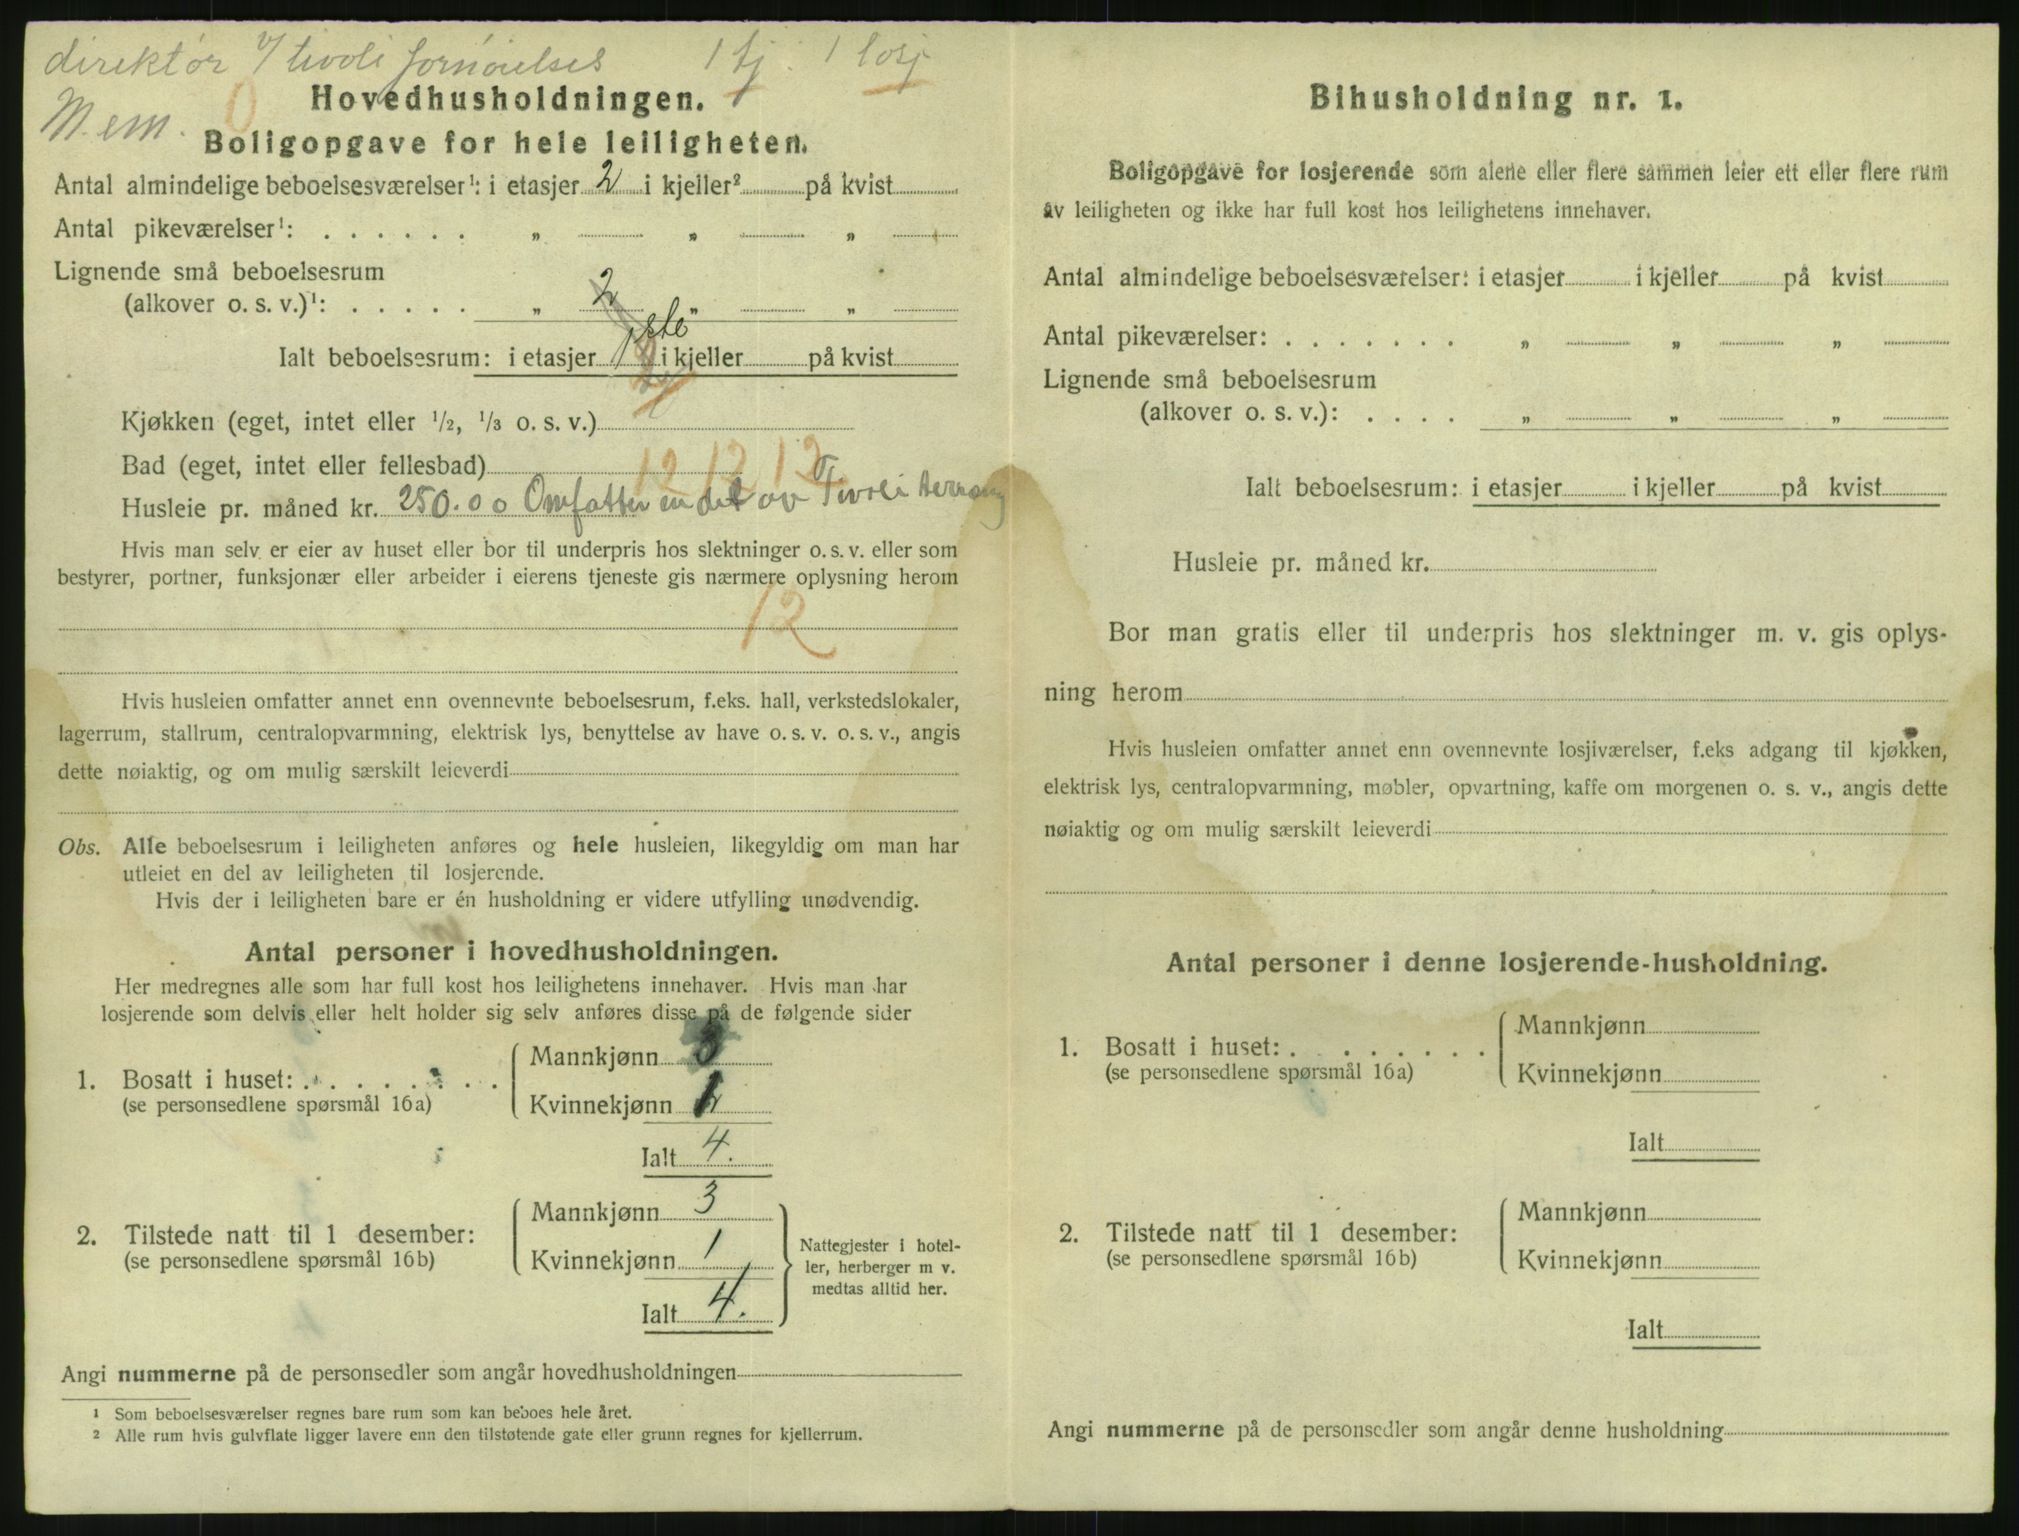 direktør v/ tivoli fornøielses 1 tj. 1 losj
M. em. 0
Hovedhusholdningen.
Boligopgave for hele leiligheten.
Antal almindelige beboelsesværelser¹: i etasjer 2 i kjeller² på kvist
Antal pikeværelser¹: . . . . . . „ „ „
Lignende små beboelsesrum
(alkover o. s. v.)¹: . . . . . „ 2 „ „
Ialt beboelsesrum: i etasjer 1ste i kjeller på kvist
Kjøkken (eget, intet eller 1/2, 1/3 o. s. v.)
Bad (eget, intet eller fellesbad) 12 12 12
Husleie pr. måned kr. 250.00 Omfatter en del av Tivoli
Hvis man selv er eier av huset eller bor til underpris hos slektninger o. s. v. eller som
bestyrer, portner, funksjonær eller arbeider i eierens tjeneste gis nærmere oplysning herom
12
Hvis husleien omfatter annet enn ovennevnte beboelsesrum, f.eks. hall, verkstedslokaler,
lagerrum, stallrum, centralopvarmning, elektrisk lys, benyttelse av have o. s. v. o. s. v., angis
dette nøiaktig, og om mulig særskilt leieverdi
Obs. Alle beboelsesrum i leiligheten anføres og hele husleien, likegyldig om man har
utleiet en del av leiligheten til losjerende.
Hvis der i leiligheten bare er én husholdning er videre utfylling unødvendig.
Antal personer i hovedhusholdningen.
Her medregnes alle som har full kost hos leilighetens innehaver. Hvis man har
losjerende som delvis eller helt holder sig selv anføres disse på de følgende sider
Mannkjønn 3
1. Bosatt i huset: . . . . . . . .
(se personsedlene spørsmål 16a)
Kvinnekjønn 1
Ialt 4.
Mannkjønn 3
2. Tilstede natt til 1 desember:
(se personsedlene spørsmål 16b)
Kvinnekjønn 1
Ialt 4.
Nattegjester i hotel-
ler, herberger m v.
medtas alltid her.
Angi nummerne på de personsedler som angår hovedhusholdningen
¹ Som beboelsesværelser regnes bare rum som kan beboes hele året.
² Alle rum hvis gulvflate ligger lavere enn den tilstøtende gate eller grunn regnes for kjellerrum.
Bihusholdning nr. 1.
Boligopgave for losjerende som alene eller flere sammen leier ett eller flere rum
av leiligheten og ikke har full kost hos leilighetens innehaver.
Antal almindelige beboelsesværelser: i etasjer i kjeller på kvist
Antal pikeværelser: . . . . . . . „ „ „
Lignende små beboelsesrum
(alkover o. s. v.): . . . . „ „ „
Ialt beboelsesrum: i etasjer i kjeller på kvist
Husleie pr. måned kr.
Bor man gratis eller til underpris hos slektninger m. v. gis oplys-
ning herom
Hvis husleien omfatter annet enn ovennevnte losjiværelser, f.eks adgang til kjøkken,
elektrisk lys, centralopvarmning, møbler, opvartning, kaffe om morgenen o. s. v., angis dette
nøiaktig og om mulig særskilt leieverdi
Antal personer i denne losjerende-husholdning.
Mannkjønn
1. Bosatt i huset: . . . . . . . .
(se personsedlene spørsmål 16a)
Kvinnekjønn
Ialt
Mannkjønn
2. Tilstede natt til 1 desember:
(se personsedlene spørsmål 16b)
Kvinnekjønn
Ialt
Angi nummerne på de personsedler som angår denne husholdning